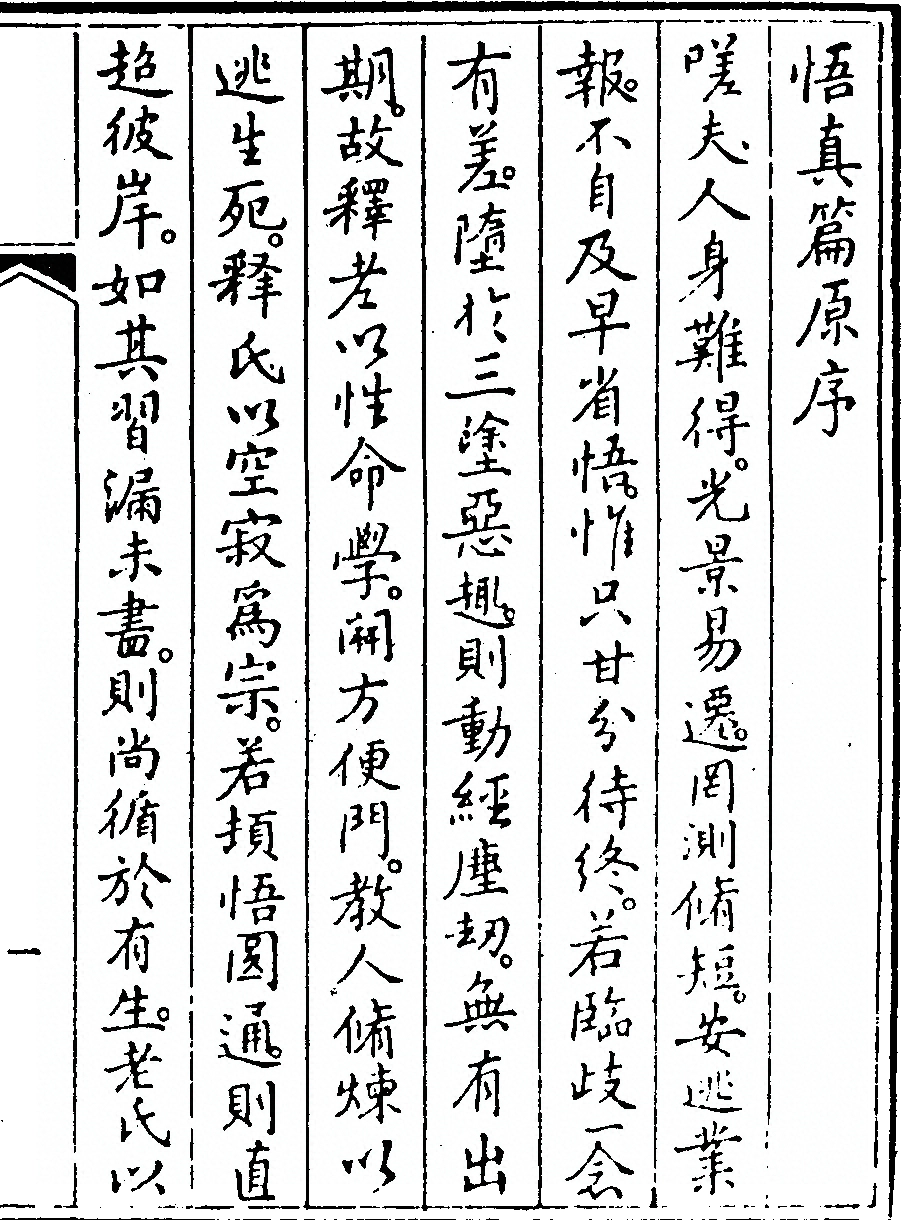 悟真篇原序
嗟夫人身難得。光景易遷。罔測脩短。安逃業
報。不自及早省悟。惟只甘分待終。若臨歧一念
有差。墮於三塗惡趣。則動經塵劫。無有出
期。故釋老以性命學。開方便門。教人脩煉以
逃生死。释氏以空寂爲宗。若頓悟圓通。則直
超彼岸。如其習漏未盡。則尚循於有生。老氏以
一